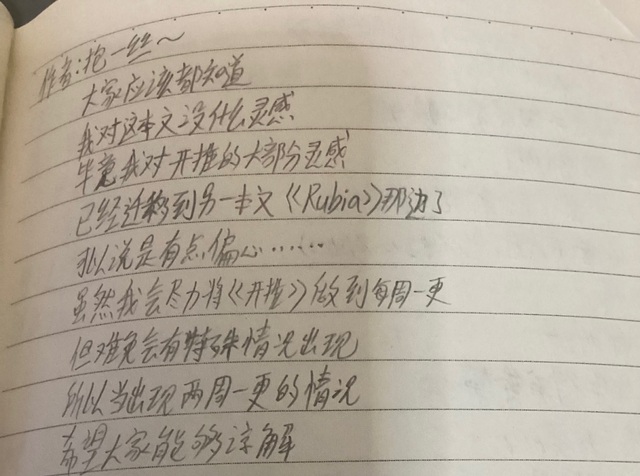 作者:抱一丝～
大家应该都知道
我对这本文没什么灵感
毕竟我对开推的大部分灵感
已经迁移到另一本文《Rubia》那边了
可以说是有点偏心……
虽然我会尽力将《开推》做到每周一更
但难免会有特殊情况出现
所以当出现两周一更的情况
希望大家能够谅解